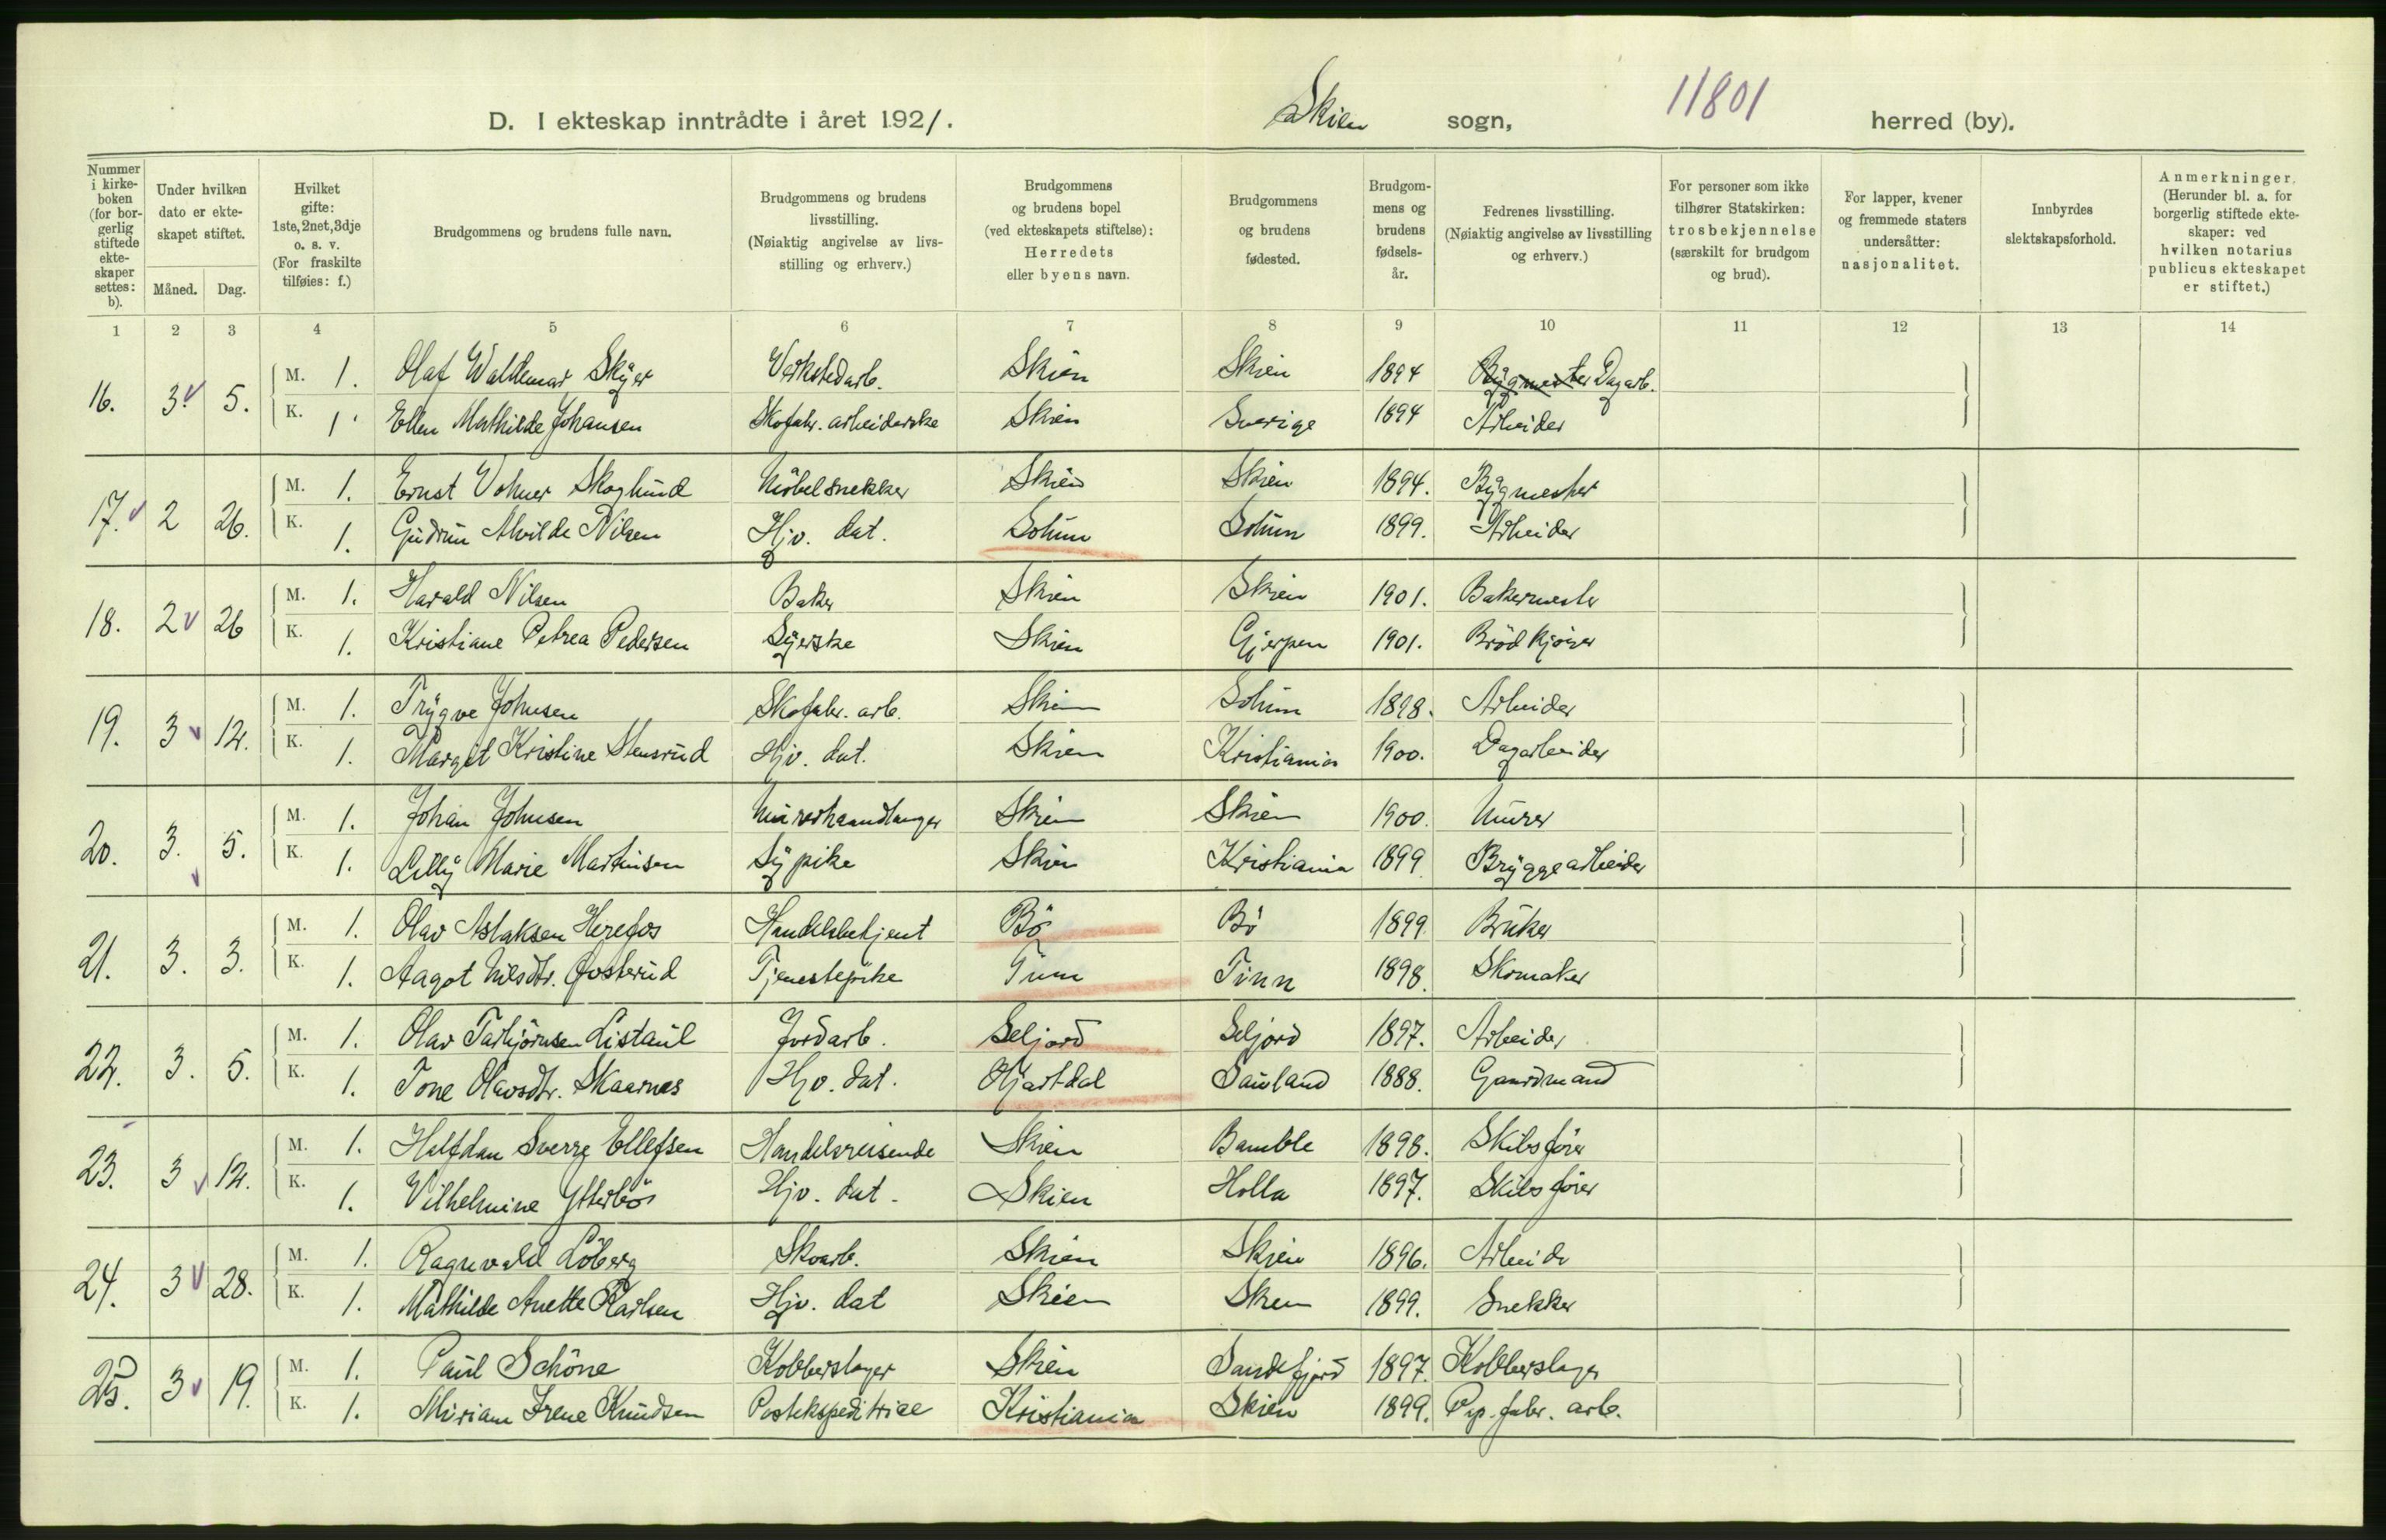 D. I ekteskap inntrådte i året 1921. Skien sogn, 11801 herred (by).
Nummer i kirkeboken (for borgerlig stiftede ekteskaper settes: b).
Under hvilken dato er ekteskapet stiftet.
Måned. Dag.
Hvilket gifte: 1ste, 2net, 3dje o. s. v. (For fraskilte tilføies: f.)
Brudgommens og brudens fulle navn.
Brudgommens og brudens livsstilling. (Nøiaktig angivelse av livsstilling og erhverv.)
Brudgommens og brudens bopel (ved ekteskapets stiftelse): Herredets eller byens navn.
Brudgommens og brudens fødested.
Brudgommens og brudens fødselsår.
Fedrenes livsstilling. (Nøiaktig angivelse av livsstilling og erhverv.)
For personer som ikke tilhører Statskirken: trosbekjennelse (særskilt for brudgom og brud).
For lapper, kvener og fremmede staters undersåtter: nasjonalitet.
Innbyrdes slektskapsforhold.
Anmerkninger. (Herunder bl. a. for borgerlig stiftede ekteskaper: ved hvilken notarius publicus ekteskapet er stiftet.)
1 2 3 4 5 6 7 8 9 10 11 12 13 14
16. 3 5. M. 1. Olaf Waldemar Skyer Verkstedarb. Skien Skien 1894 Bygmester Dagarb.
K. 1. Ellen Mathilde Johansen Skofabr. arbeiderske Skien Sverige 1894 Arbeider
17. 2 26. M. 1. Ernst Volmer Skoglund Möbelsnekker Skien Skien 1894. Bygmester
K. 1. Gudrun Alvilde Nilsen Hjv. dat. Solum Solum 1899. Arbeider
18. 2 26 M. 1. Harald Nilsen Baker Skien Skien 1901. Bakermester
K. 1. Kristiane Petrea Pedersen Syerske Skien Gjerpen 1901. Brödkjörer
19. 3 12. M. 1. Trygve Johnsen Skofabr. arb. Skien Solum 1898. Arbeider
K. 1. Margit Kristine Stensrud Hjv. dat. Skien Kristiania 1900. Dagarbeider
20. 3. 5. M. 1. Johan Johnsen Murerhaandlanger Skien Skien 1900. Murer
K. 1. Lilly Marie Martinsen Sypike Skien Kristiania 1899 Bryggearbeider
21. 3. 3. M. 1. Olav Aslaksen Herefos Handelsbetjent Bö Bö 1899 Bruker
K. 1. Aagot Nilsdtr. Gosterud Tjenestepike Tinn Tinn 1898. Skomaker
22. 3. 5. M. 1. Olav Tarbjörnsen Listaul Jordarb. Seljord Seljord 1897. Arbeider
K. 1. Tone Olavsdtr. Skaarnes Hjv. dat. Hjartdal Sauland 1888. Gaardmand
23. 3 12. M. 1. Halfdan Sverre Ellefsen Handelsreisende Skien Bamble 1898. Skibsförer
K. 1. Vilhelmine Ytterbö Hjv. dat. Skien Holla 1897. Skibsförer
24. 3 28. M. 1. Ragnvald Löberg Skoarb. Skien Skien 1896. Arbeider
K. 1. Mathilde Anette Karlsen Hjv. dat Skien Skien 1899. Snekker
25. 3 19. M. 1. Paul Schöne Kobberslager Skien Sandefjord 1897. Kobberslager
K. 1. Miriam Irene Knudsen Postekspeditrice Kristiania Skien 1899. Pap. fabr. arb.